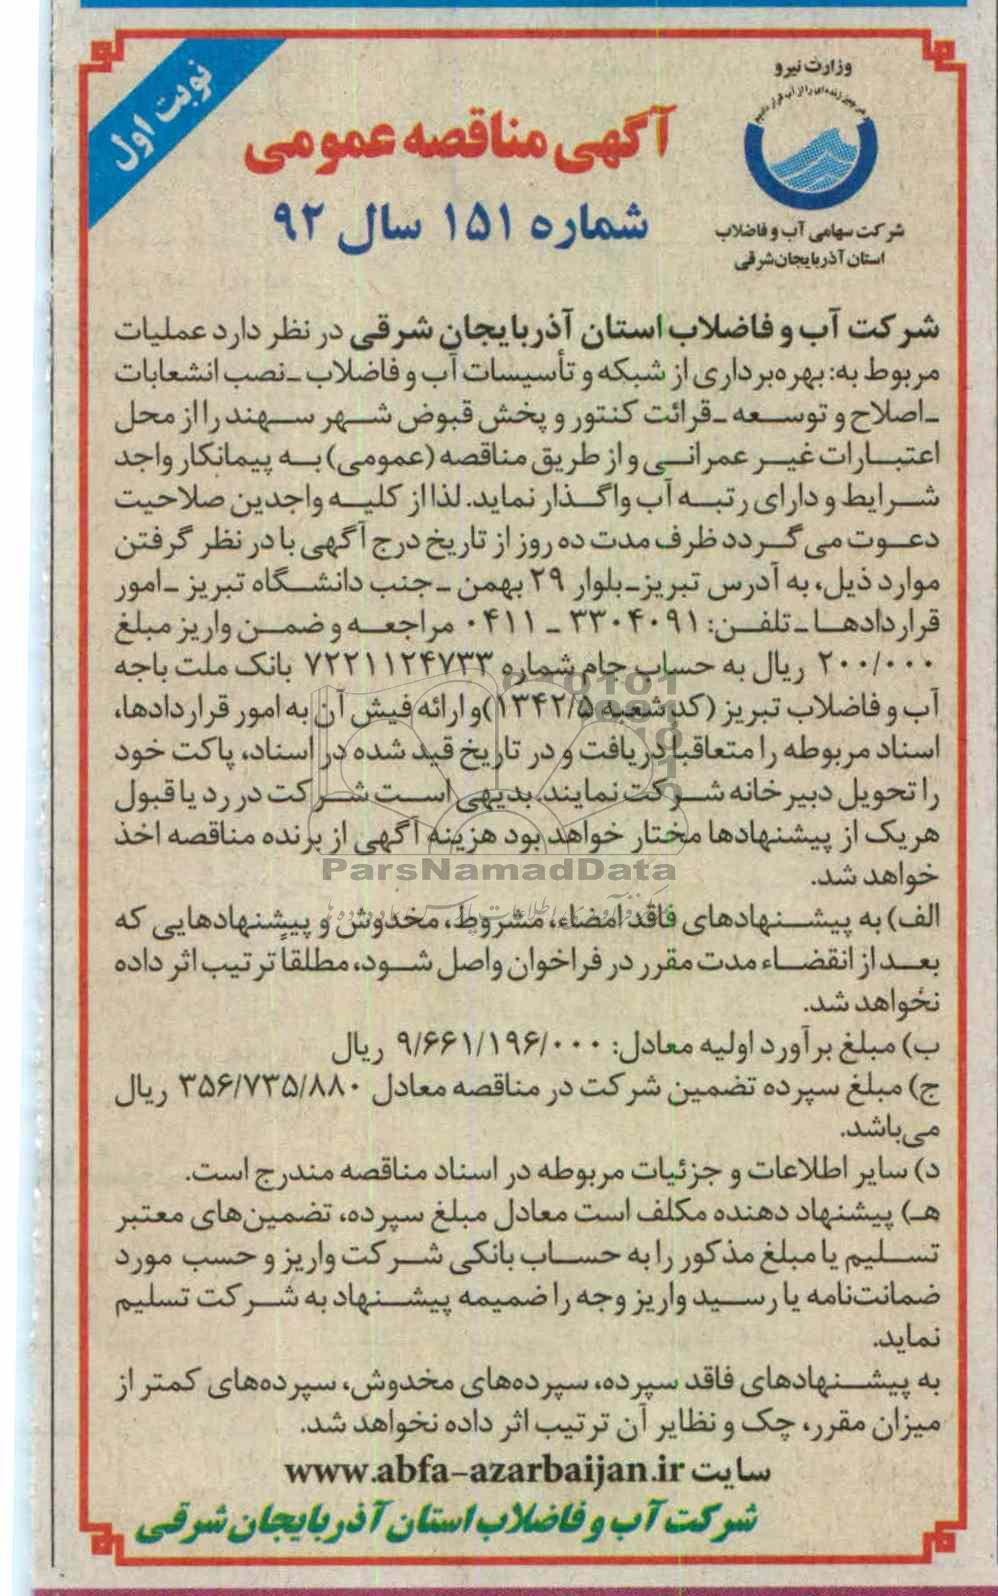 وزارت نیرو
شرکت سهامی آب و فاضلاب
استان آذربایجان‌شرقی
نوبت اول
آگهی مناقصه عمومی
شماره ۱۵۱ سال ۹۲
شرکت آب و فاضلاب استان آذربایجان شرقی در نظر دارد عملیات
مربوط به: بهره‌برداری از شبکه و تأسیسات آب و فاضلاب ـ نصب انشعابات
ـ اصلاح و توسعه ـ قرائت کنتور و پخش قبوض شهر سهند را از محل
اعتبارات غیر عمرانی و از طریق مناقصه (عمومی) به پیمانکار واجد
شرایط و دارای رتبه آب واگذار نماید. لذا از کلیه واجدین صلاحیت
دعوت می‌گردد ظرف مدت ده روز از تاریخ درج آگهی با در نظر گرفتن
موارد ذیل، به آدرس تبریز ـ بلوار ۲۹ بهمن ـ جنب دانشگاه تبریز ـ امور
قراردادها ـ تلفن: ۳۳۰۴۰۹۱ ـ ۰۴۱۱ مراجعه و ضمن واریز مبلغ
۲۰۰/۰۰۰ ریال به حساب جام شماره ۷۲۲۱۱۲۴۷۳۳ بانک ملت باجه
آب و فاضلاب تبریز (کد شعبه ۱۳۴۲/۵) و ارائه فیش آن به امور قراردادها،
اسناد مربوطه را متعاقبا دریافت و در تاریخ قید شده در اسناد، پاکت خود
را تحویل دبیرخانه شرکت نمایند. بدیهی است شرکت در رد یا قبول
هریک از پیشنهادها مختار خواهد بود هزینه آگهی از برنده مناقصه اخذ
خواهد شد.
ParsNamadData
الف) به پیشنهادهای فاقد امضاء، مشروط، مخدوش و پیشنهادهایی که
بعد از انقضاء مدت مقرر در فراخوان واصل شود، مطلقاً ترتیب اثر داده
نخواهد شد.
ب) مبلغ برآورد اولیه معادل: ۹/۶۶۱/۱۹۶/۰۰۰ ریال
ج) مبلغ سپرده تضمین شرکت در مناقصه معادل ۳۵۶/۷۳۵/۸۸۰ ریال
می‌باشد.
د) سایر اطلاعات و جزئیات مربوطه در اسناد مناقصه مندرج است.
هـ) پیشنهاد دهنده مکلف است معادل مبلغ سپرده، تضمین‌های معتبر
تسلیم یا مبلغ مذکور را به حساب بانکی شرکت واریز و حسب مورد
ضمانت‌نامه یا رسید واریز وجه را ضمیمه پیشنهاد به شرکت تسلیم
نماید.
به پیشنهادهای فاقد سپرده، سپرده‌های مخدوش، سپرده‌های کمتر از
میزان مقرر، چک و نظایر آن ترتیب اثر داده نخواهد شد.
سایت www.abfa-azarbaijan.ir
شرکت آب و فاضلاب استان آذربایجان شرقی